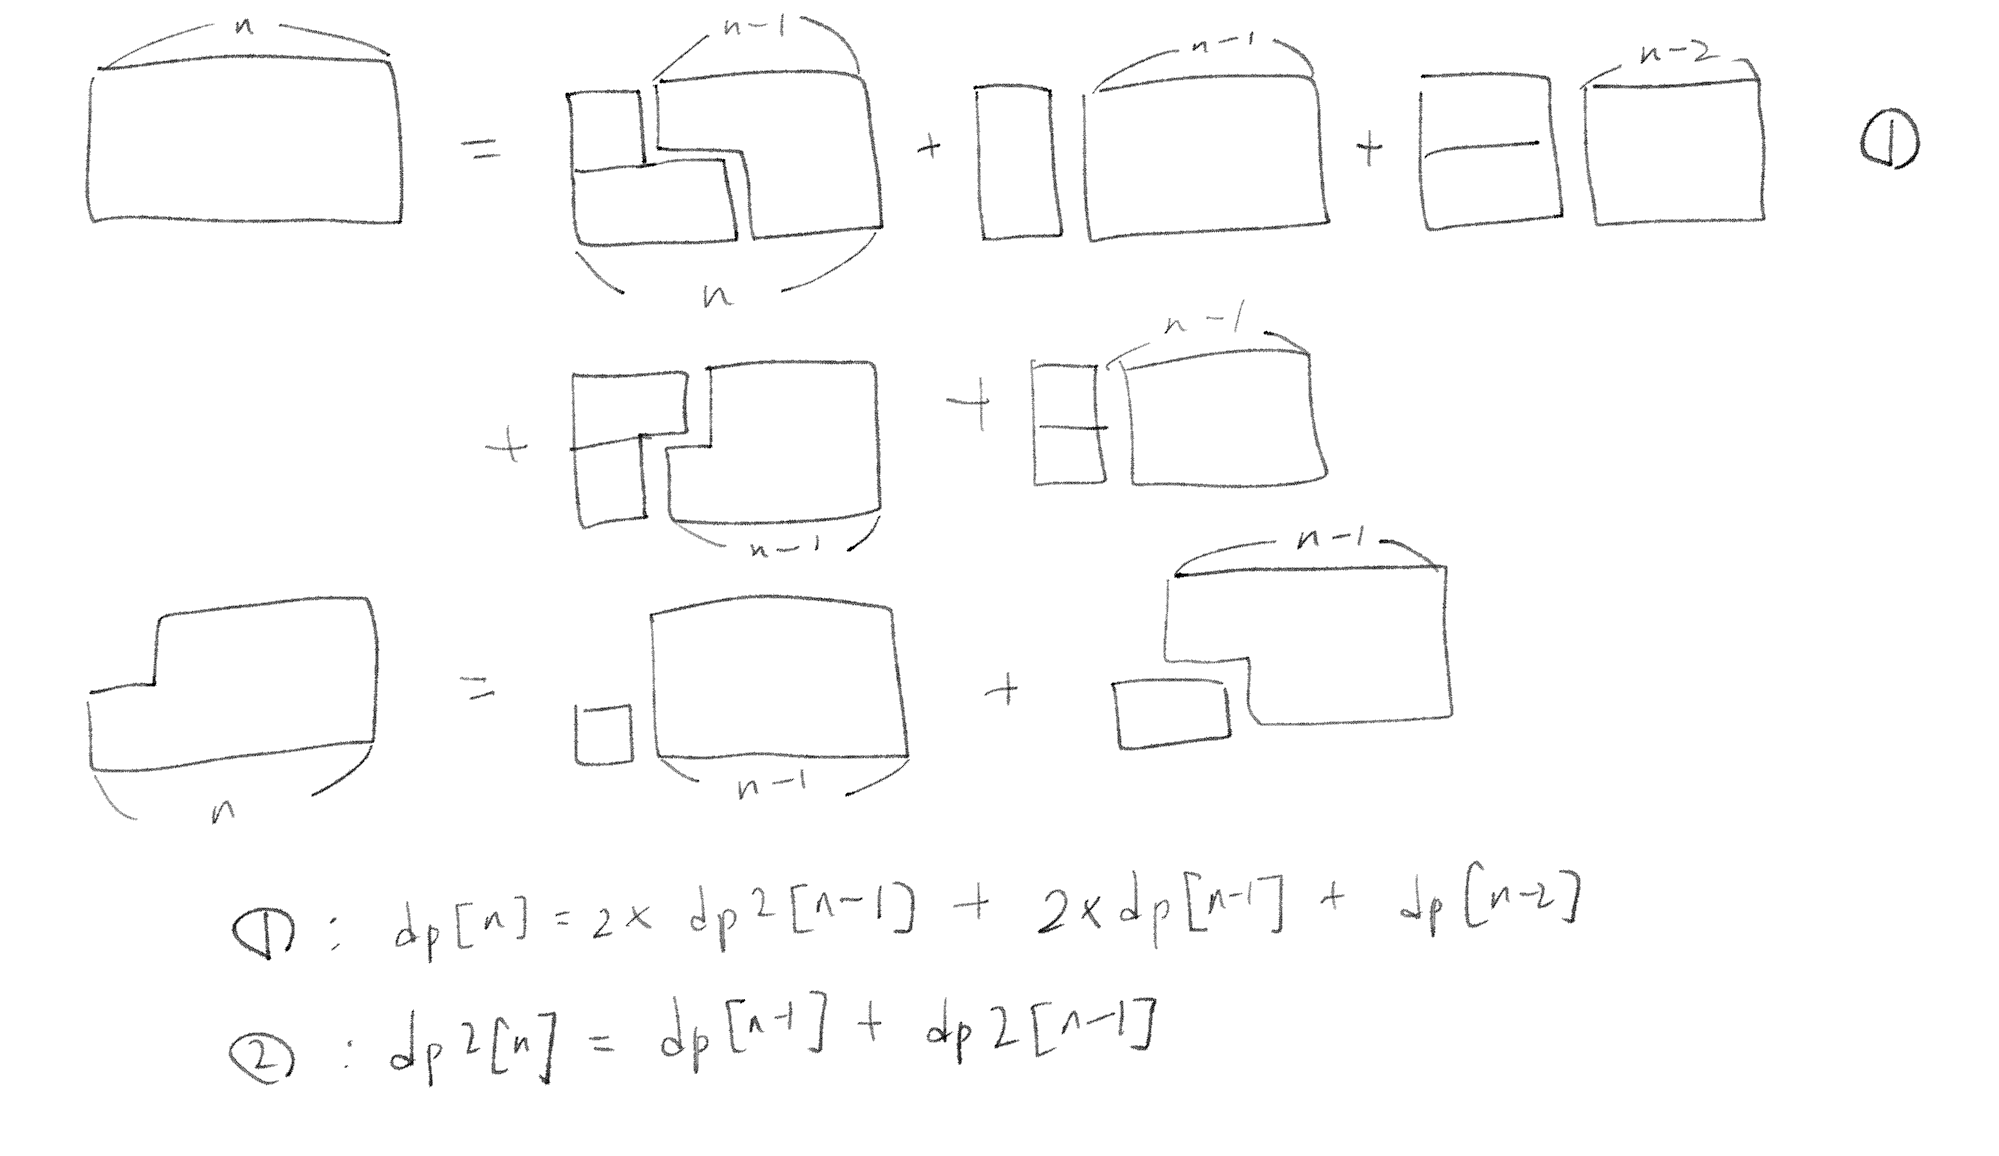 n = n-1 n + n-1 + n-2 ①
+ n-1 + n-1
n = n-1 + n-1
① : dp[n] = 2x dp2[n-1] + 2xdp[n-1] + dp[n-2]
② : dp2[n] = dp[n-1] + dp2[n-1]